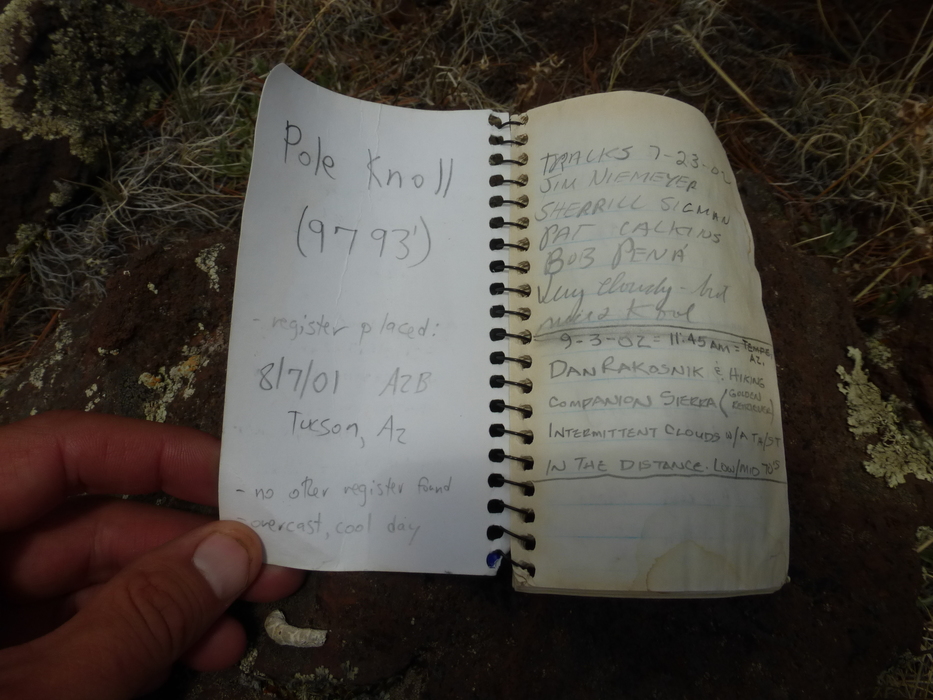 Pole Knoll
(9793')
- register placed:
8/7/01 AZB
Tucson, Az
- no other register found
overcast, cool day
TRACKS 7-23-02
JIM NIEMEYER
SHERRILL SIGMAN
PAT CALKINS
BOB PENA
Very cloudy -
9-3-02 = 11:45 AM = TEMPE, AZ.
DAN RAKOSNIK & HIKING
COMPANION SIERRA (GOLDEN RETRIEVER)
INTERMITTENT CLOUDS W/A
IN THE DISTANCE. LOW/MID 70S